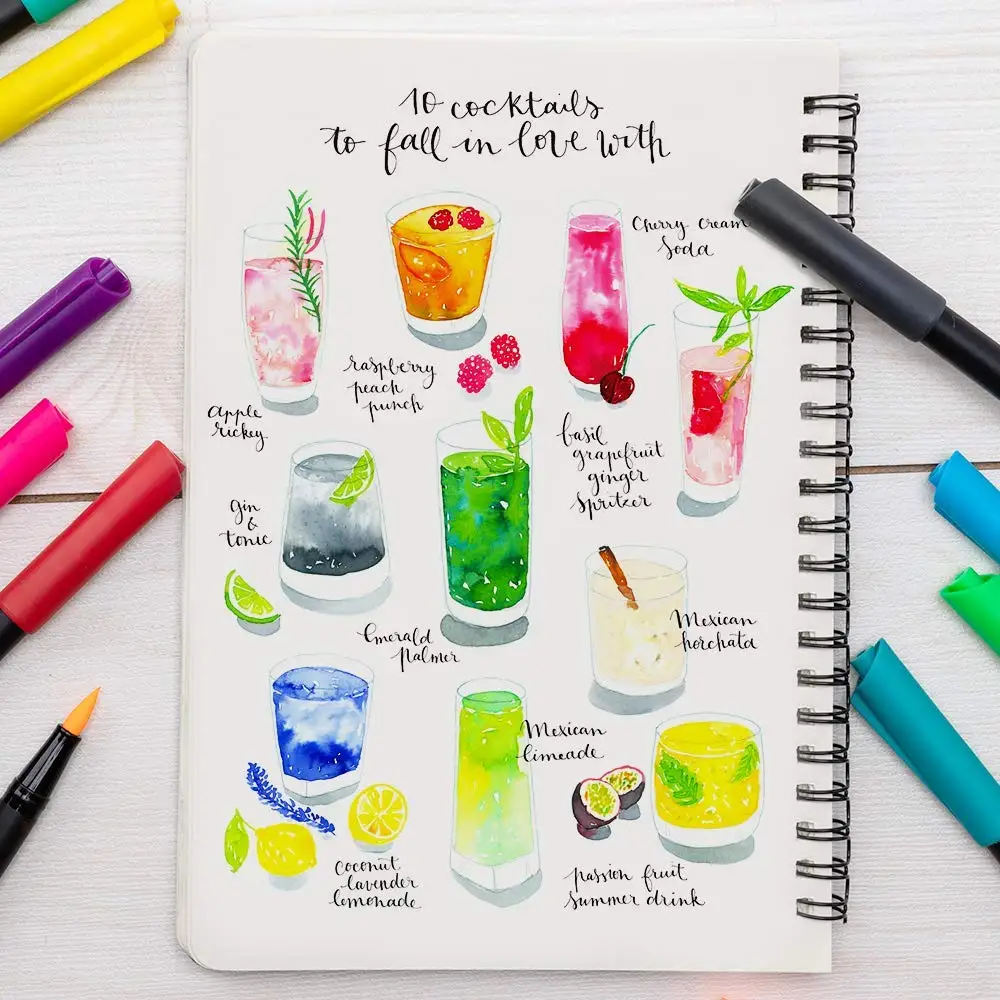 10 cocktails
to fall in love with
Cherry cream
Soda
raspberry
peach
punch
Apple
rickey
basil
grapefruit
ginger
Spritzer
gin
&
tonic
Emerald
Palmer
Mexican
horchata
Mexican
limeade
Coconut
lavender
lemonade
passion fruit
summer drink